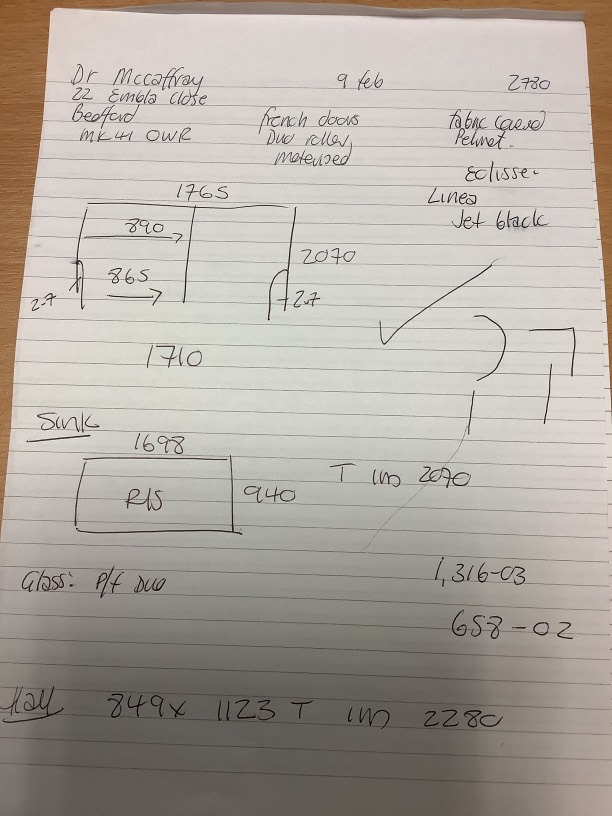 Dr Mccaffray
22 Embla Close
Bedford
MK41 0WR
9 feb
2780
french doors
Duo roller,
moterised
fabric
Pelmet.
Eclisse.
Linea
Jet black
1765
890
865
2070
2.7
2.7
1710
Sink
1698
R/S
940
T 2070
Glass: P/f Duo
1,316-03
658-02
Hall 849x 1123 T 2280